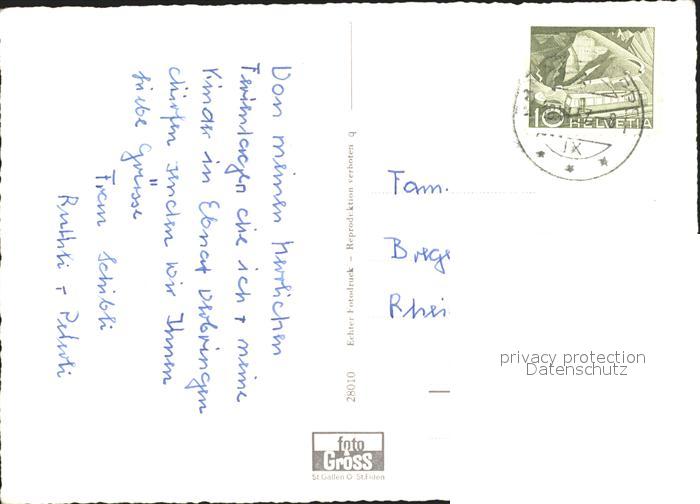 Von meinen herrlichen
Ferientagen die ich + meine
Kinder in Ebnat verbringen
dürfen senden wir Ihnen
liebe Grüsse
Frau Schibli
Ruthli + Peterli
28010 Echter Fotodruck – Reproduktion verboten q
foto
Gross
St.Gallen O St.Fiden
10 HELVETIA
IX
Fam.
Brege
Rhei
privacy protection
Datenschutz